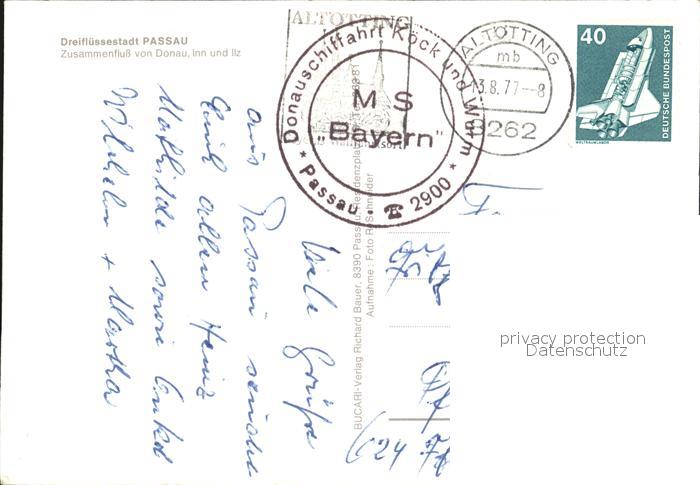 Dreiflüssestadt PASSAU
Zusammenfluß von Donau, Inn und Ilz
ALTÖTTING
Donauschiffahrt Köck und Wurm
M S
"Bayern"
* Passau . ☎ 2900 *
ALTÖTTING
mb
13.8.77--8
8262
40
DEUTSCHE BUNDESPOST
WELTRAUMLABOR
BUCARI-Verlag Richard Bauer, 8390 Passau, Residenzplatz
Aufnahme: Foto R. Schneider
Viele Grüße
aus Passau senden
Euch allen Heinz
Mathilde sowie Onkel
Wilhelm + Martha
privacy protection
Datenschutz